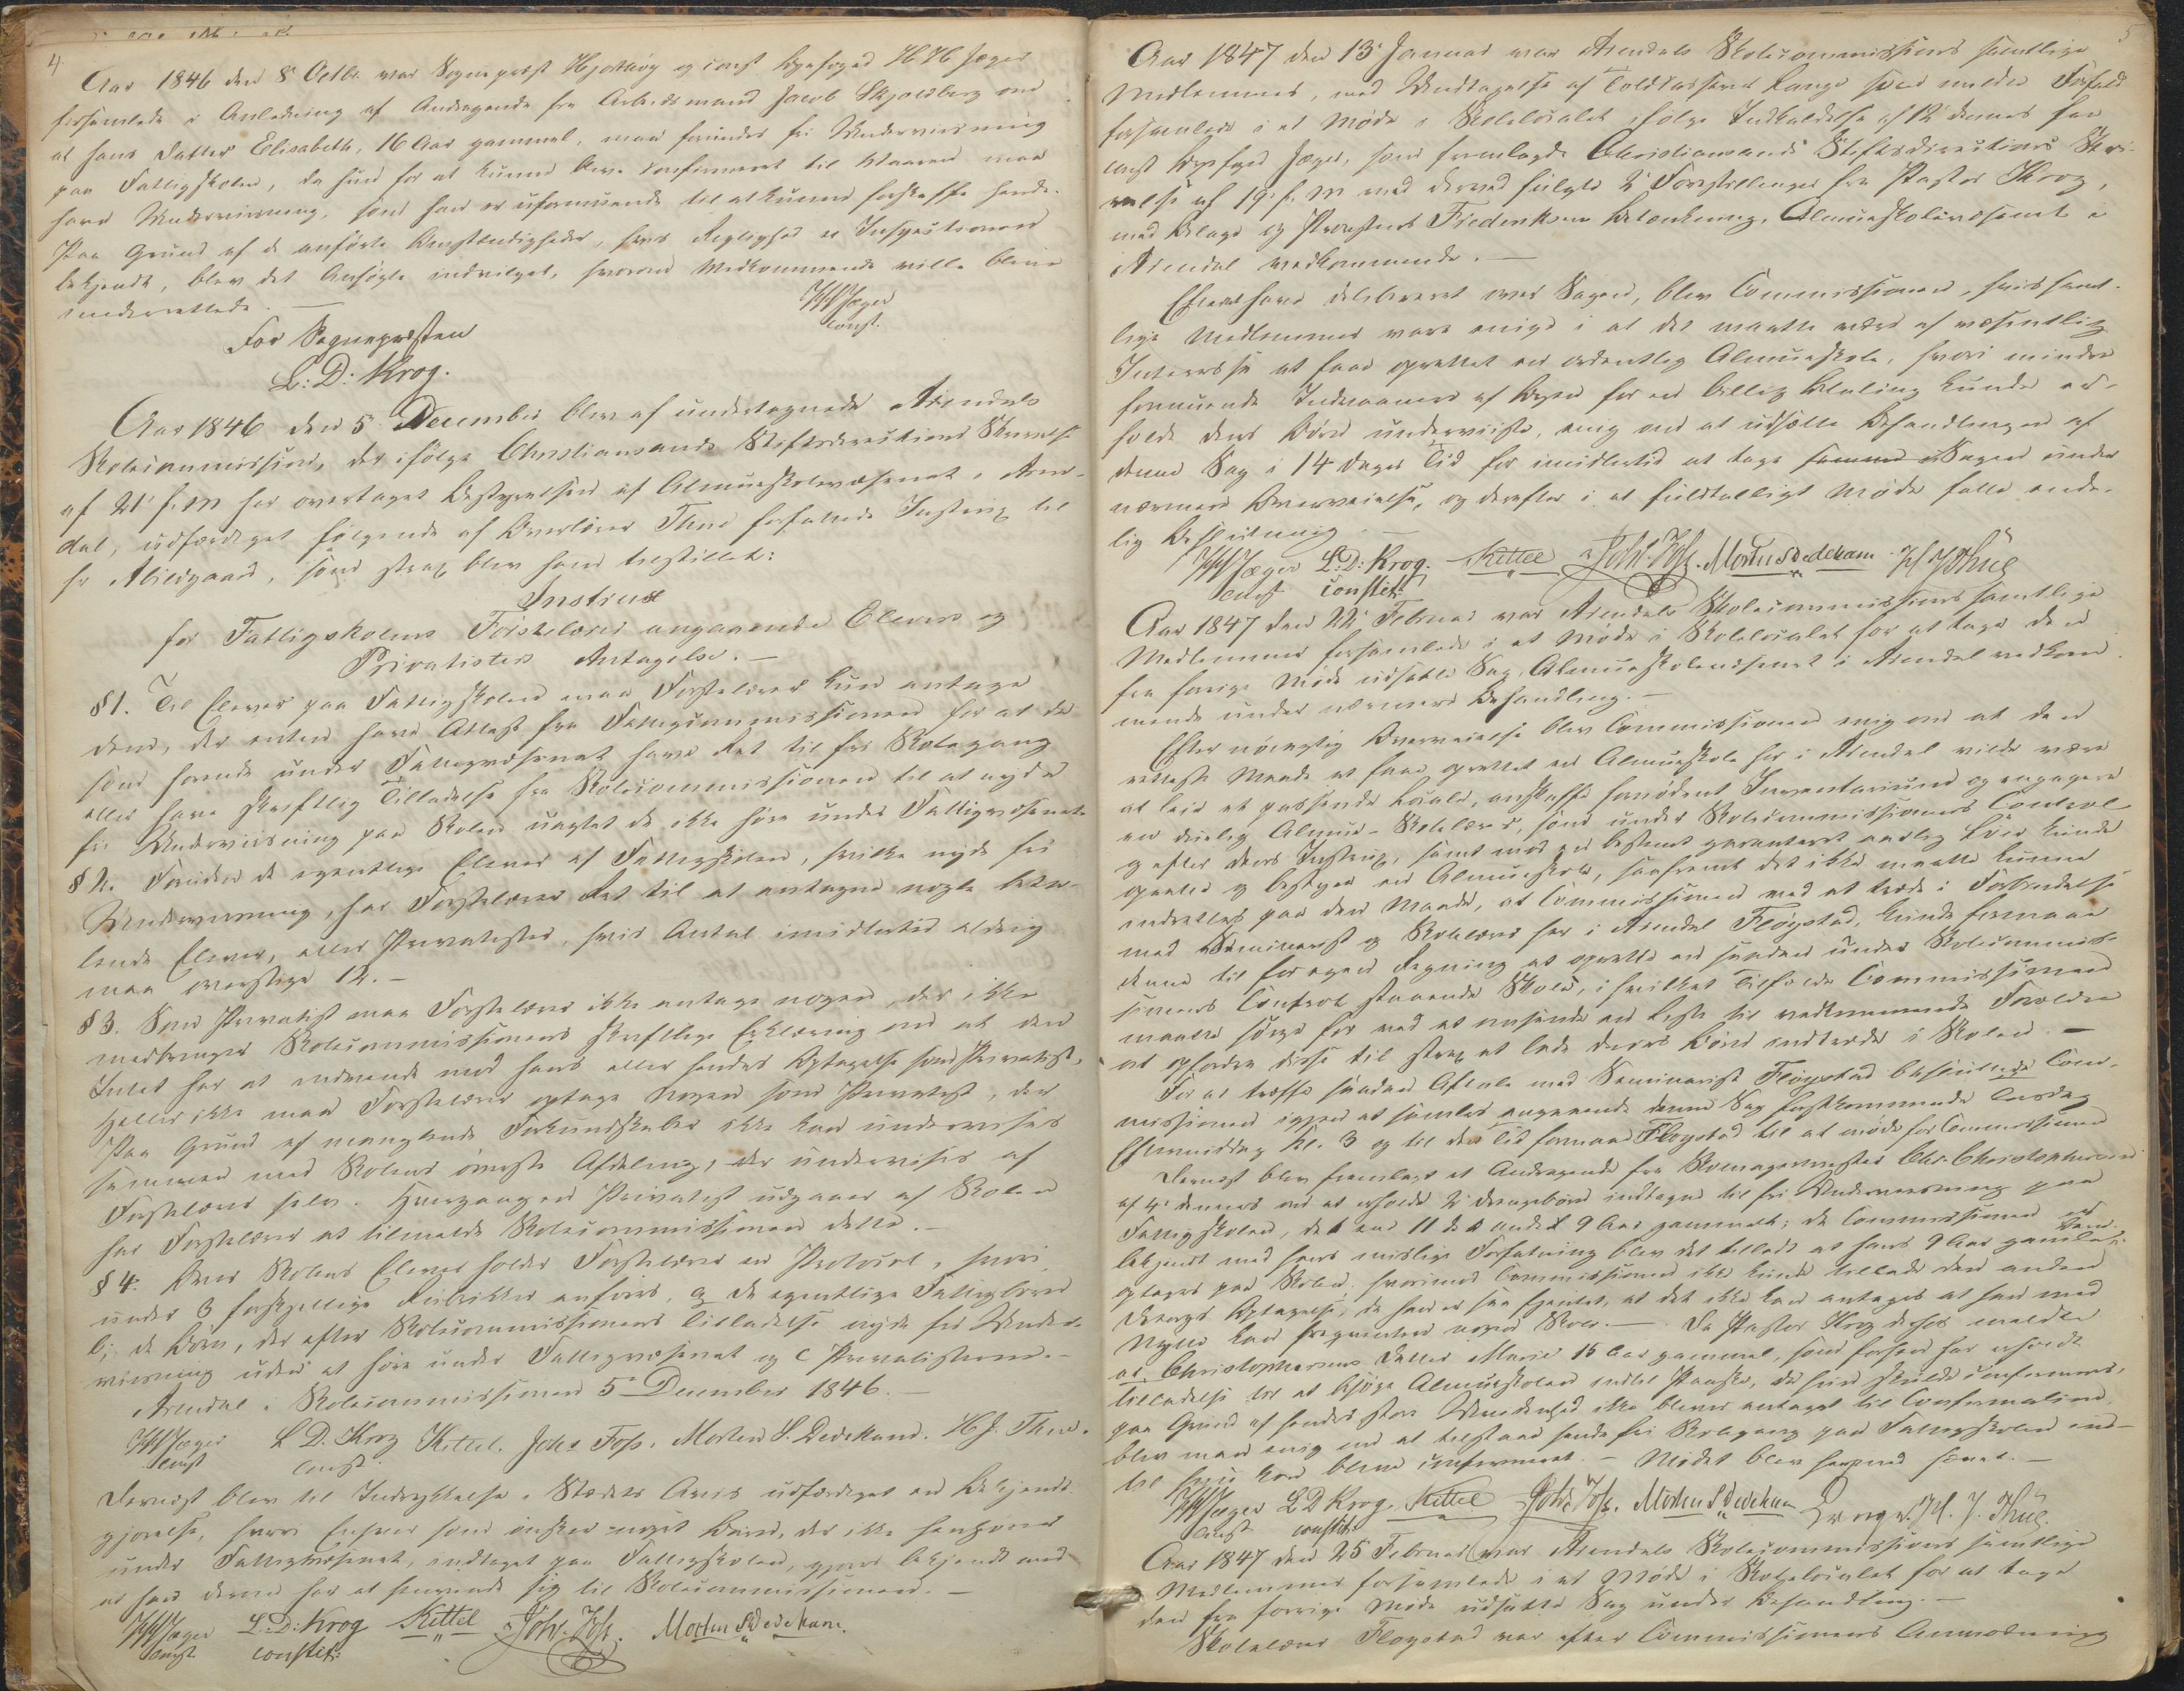 4.
Aar 1846 den 8 Octbr. var Sognepræst Hjorthøy og const. Byefoged H H Jæger
forsamlede i Anledning af Andragende fra Arbeidsmand Jacob Skjoldberg om
at hans Datter Elisabeth, 16 Aar gammel, maa forundes fri Underviisning
paa Fattigskolen, da hun for at kunne blive confirmeret til Vaaren maa
have Underviisning, som han er uformuende til at kunne forskaffe hende.
Paa Grund af de anførte Omstændigheder, hvis Rigtighed er Inspectionen
bekjendt, blev det Ansøgte indvilget, hvorom Vedkommende ville blive
underrettede. —
HH Jæger
const.
For Sognepræsten
L: D: Krog.
Aar 1846 den 5 December blev af undertegnede Arendals
Skolecommission, der ifølge Christiansands Stiftsdirections Skrivelse
af 21 f. M har overtaget Bestyrelsen af Almueskolevæsenet i Aren-
dal, udfærdiget følgende af Overlærer Thue forfattede Instrux til
Hr Abildgaard, som strax blev ham tilstillet:
Instrux
for Fattigskolens Førstelærer angaaende Elevers og
Privatisters Antagelse. —
§ 1. Til Elever paa Fattigskolen maa Førstelærer kun antage
dem, der enten have Attest fra Fattigcommissionen for at de
som hørende under Fattigvæsenet have Ret til fri Skolegang
eller have skriftlig Tilladelse fra Skolecommissionen til at nyde
fri Underviisning paa Skolen uagtet de ikke høre under Fattigvæsenet.
§ 2. Foruden de egentlige Elever af Fattigskolen, hvilke nyde fri
Underviisning, har Førstelærer Ret til at antage nogle beta-
lende Elever, eller Privatister, hvis Antal imidlertid aldrig
maa overstige 12. —
§ 3. Som Privatist maa Førstelærer ikke antage nogen, der ikke
medbringer Skolecommissionens skriftlige Erklæring om at den
Intet har at indvende mod hans eller hendes Optagelse som Privatist,
Heller ikke maa Førstelærer optage Nogen som Privatist, der
Paa Grund af manglende Forkundskaber ikke kan undervises
sammen med Skolens øverste Afdeling, der undervises af
Førstelærer selv. Hvergang en Privatist udgaaer af Skolen
har Førstelærer at tilmelde Skolecommissionen dette. —
§ 4. Over Skolens Elever holder Førstelærer en Protocol, hvori
under 3 forskjellige Rubrikker anføres, a de egentlige Fattigbørn
b; de Børn, der efter Skolecommissionens Tilladelse nyde fri Under-
viisning uden at høre under Fattigvæsenet og c Privatisterne. —
Arendal i Skolecommissionen 5 December 1846. —
HH Jæger L D. Krog Kittel. Johs Foss. Morten S. Dedekam. H J. Thue.
const const.
Dernæst blev til Indrykkelse i Stedets Avis udfærdiget en Bekjendt-
gjørelse, hvori Enhver som ønsker noget Barn, der ikke henhører
under Fattigvæsenet, indtaget paa Fattigskolen, gjøres bekjendt med
at han derom har at henvende sig til Skolecommissionen. —
HH Jæger L: D: Krog Kittel Johs. Foss. Morten S Dedekam.
const. constit:
5
Aar 1847 den 13 Januar var Arendals Skolecommissions samtlige
Medlemmer, med Undtagelse af Toldkasserer Lange som meldte Forfald
forsamlede i et Møde i Skolelocalet ifølge Indkaldelse af 12 dennes fra
const Byefoged Jæger, som fremlagde Christiansands Stiftsdirections Skri-
velse af 19 f. M med dermed fulgte 2 Forestillinger fra Pastor Krog,
med Bilage og Provstens Betænkning, Almueskolevæsenet i
Arendal vedkommende. —
Efterat have delibereret over Sagen, blev Commissionen, hvis samt-
lige Medlemmer vare enige i at det maatte være af væsentlig
Interesse at faae oprettet en ordentlig Almueskole, hvori mindre
formuende Indvaanere af Byen for en billig Betaling kunde er-
holde deres Børn underviiste, enig om at udsætte Behandlingen af
denne Sag i 14 Dages Tid for imidlertid at tage Sagen under
nærmere Overveielse, og derefter i et fuldtalligt Møde falde ende-
lig Beslutning. —
HH Jæger L: D: Krog. Kittel Johs. Foss. Morten S Dedekam. H J Thue
const constit:
Aar 1847 den 22 Februar var Arendals Skolecommissions samtlige
Medlemmer forsamlede i et Møde i Skolelocalet for at tage den
fra forrige Møde udsatte Sag, Almueskolevæsenet i Arendal vedkom-
mende under nærmere Behandling. —
Efter nøiagtig Overveielse blev Commissionen enig om at den
retteste Maade at faae oprettet en Almueskole her i Arendal vilde være
at leie et passende Locale, anskaffe fornødent Inventarium og engagere
en duelig Almue-Skolelærer, som under Skolecommissionens Control
og efter dens Instrux, samt mod en bestemt garanteret aarlig Løn kunde
oprette og bestyre en Almueskole, saafremt det ikke maatte kunne
indrettes paa den Maade, at Commissionen ved at træde i Forbindelse
med Seminarist og Skolelærer her i Arendal Fløystad, kunde formaae
denne til for egen Regning at oprette en saadan under Skolecommis-
sionens Control staaende Skole, i hvilket Tilfælde Commissionen
maatte sørge for ved at omsende en Liste til vedkommende Forældre
at opfordre disse til strax at lade deres Børn indtræde i Skolen. —
For at træffe saadan Aftale med Seminarist Fløystad besluttede Com-
missionen igjen at samles angaaende denne Sag førstkommende Torsdag
Eftermiddag Kl. 3 og til den Tid formaae Fløystad til at møde for Commissionen
Dernæst blev fremlagt et Andragende fra Skomagermester Chr. Christophersen
af 4 dennes om at erholde 2 Drengebørn indtagne til fri Underviisning paa
Fattigskolen, det ene 11 det andet 9 Aar gammelt; da Commissionen er
bekjendt med hans mislige Forfatning blev det tilladt at hans 9 Aar gamle
optages paa Skolen; hvorimod Commissionen ikke kunde tillade den anden
Drengs Optagelse, da han er saa , at det ikke kan antages at han med
Nytte kan frequentere nogen Skole. — Da Pastor Krog derhos meldte
at Christophersens Datter Marie 15 Aar gammel, som forhen har erholdt
Tilladelse til at besøge Almueskolen indtil Paaske, da hun skulde confirmeres,
paa Grund af hendes store Uvidenhed ikke bliver antaget til Confirmation,
blev man enig om at tilstaae hende fri Skolegang paa Fattigskolen ind-
til hun kan blive confirmeret. — Mødet blev herpaa hævet. —
HH Jæger L D Krog. Kittel Johs Foss. Morten S Dedekam H. J. Thue.
const constit:
Aar 1847 den 25 Februar var Arendals Skolecommissions samtlige
Medlemmer forsamlede i et Møde i Skolelocalet for at tage
den fra forrige Møde udsatte Sag under Behandling. —
Skolelærer Fløystad var efter Commissionens Anmodning